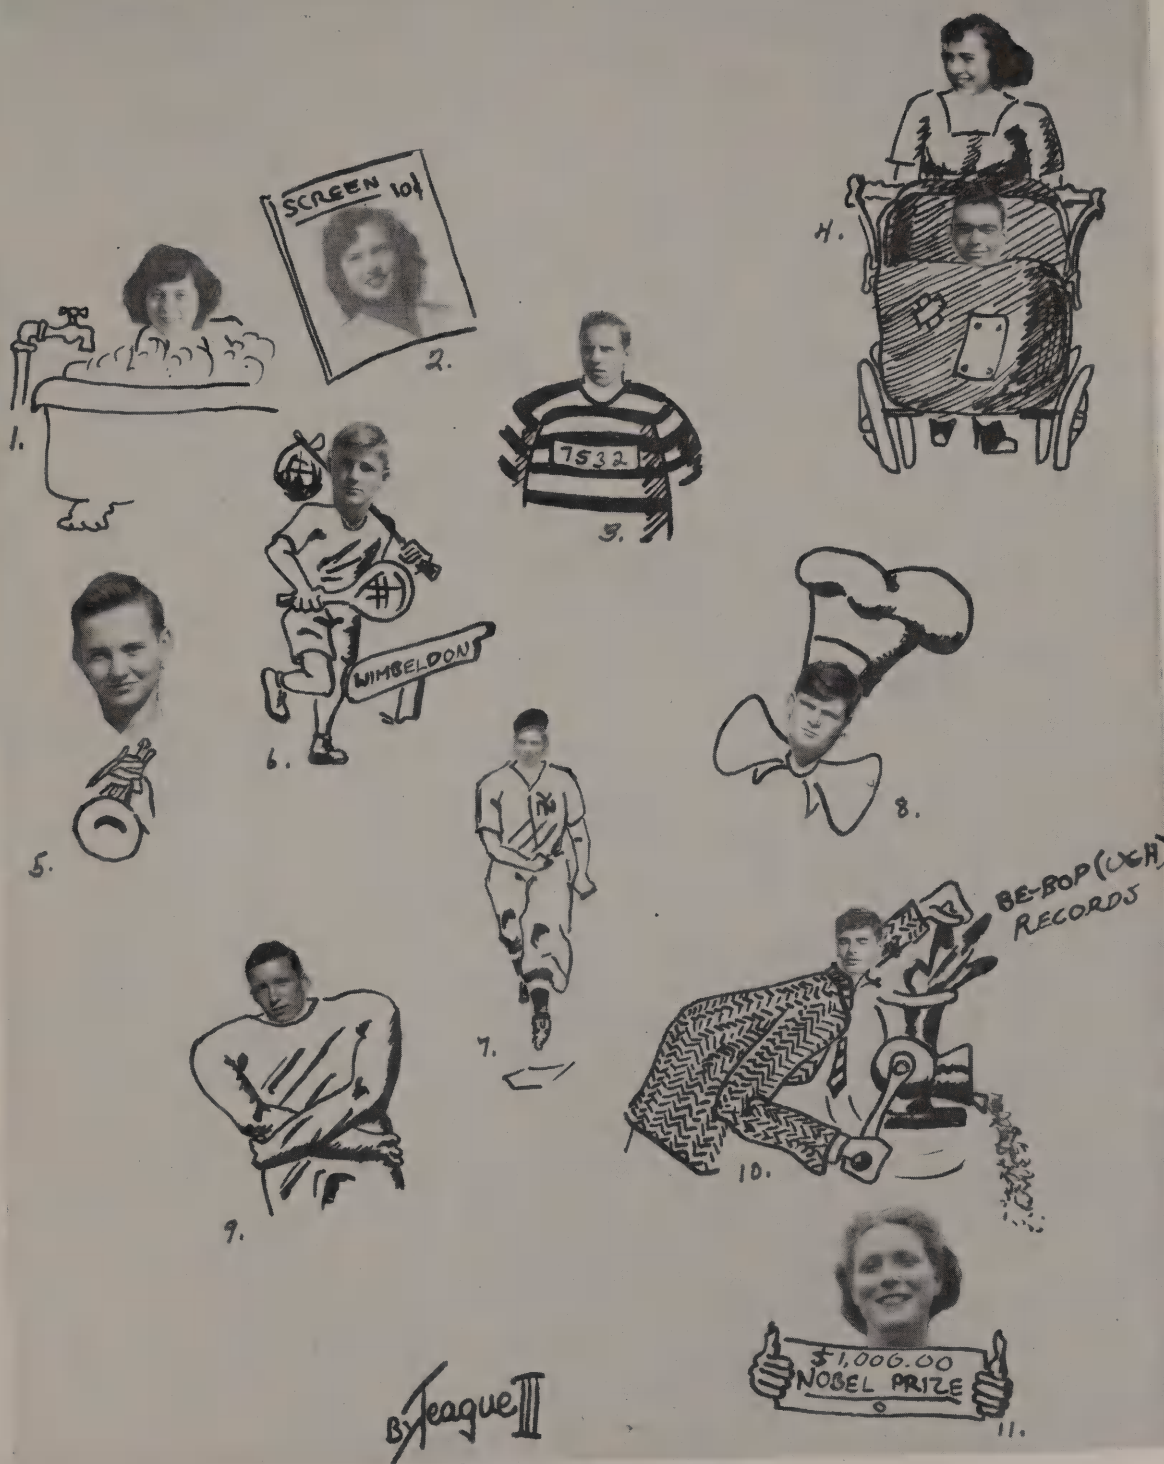 SCREEN 10¢
2.
4.
1.
7532
3.
WIMBELDON
6.
5.
NY
8.
7.
BE-BOP (UGH)
RECORDS
10.
9.
$1,000.00
NOBEL PRIZE
11.
By Teague III